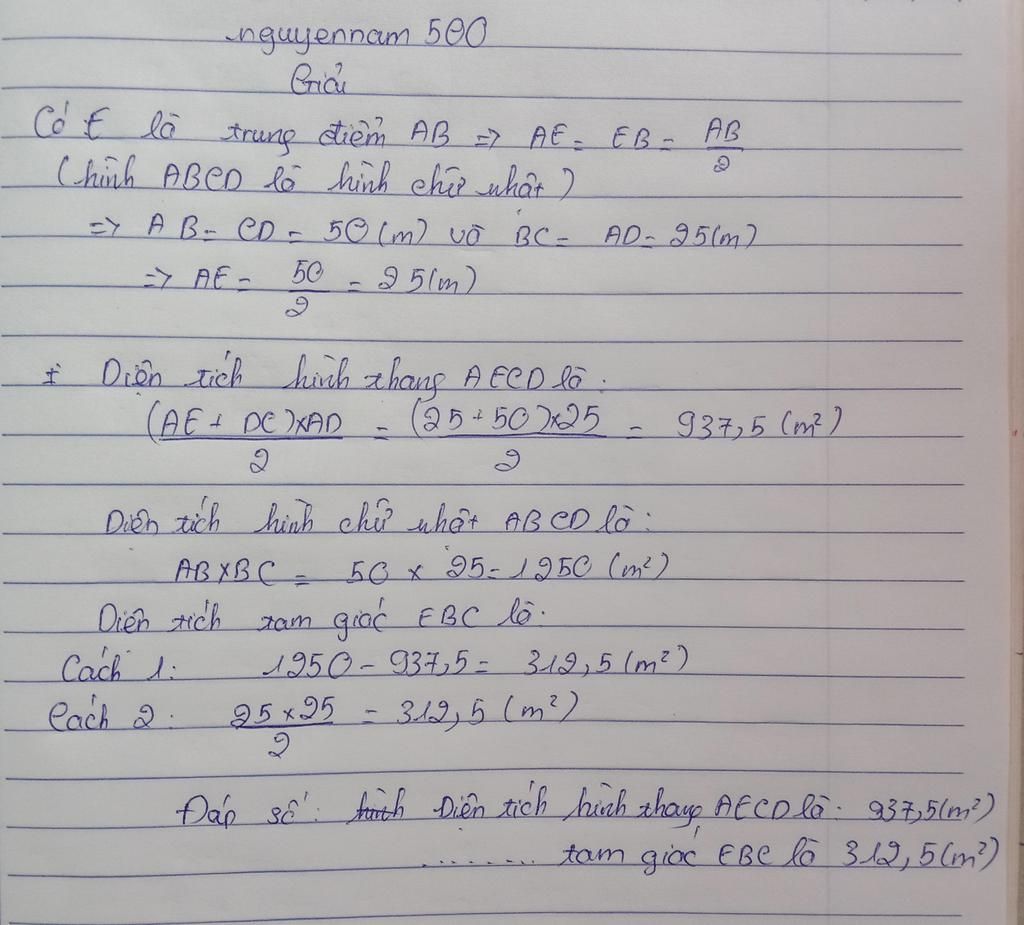 nguyennam 500
Giải
Có E là trung điểm AB => AE = EB = AB/2
(hình ABCD là hình chữ nhật)
=> AB = CD = 50 (m) và BC = AD = 25(m)
=> AE = 50/2 = 25(m)
+ Diện tích hình thang AECD là:
(AE + DC)×AD/2 = (25+50)×25/2 = 937,5 (m²)
Diện tích hình chữ nhật ABCD là:
AB×BC = 50 × 25 = 1250 (m²)
Diện tích tam giác EBC là:
Cách 1: 1250 - 937,5 = 312,5 (m²)
Cách 2: 25×25/2 = 312,5 (m²)
Đáp số: hình Diện tích hình thang AECD là: 937,5(m²)
......... tam giác EBC là 312,5(m²)